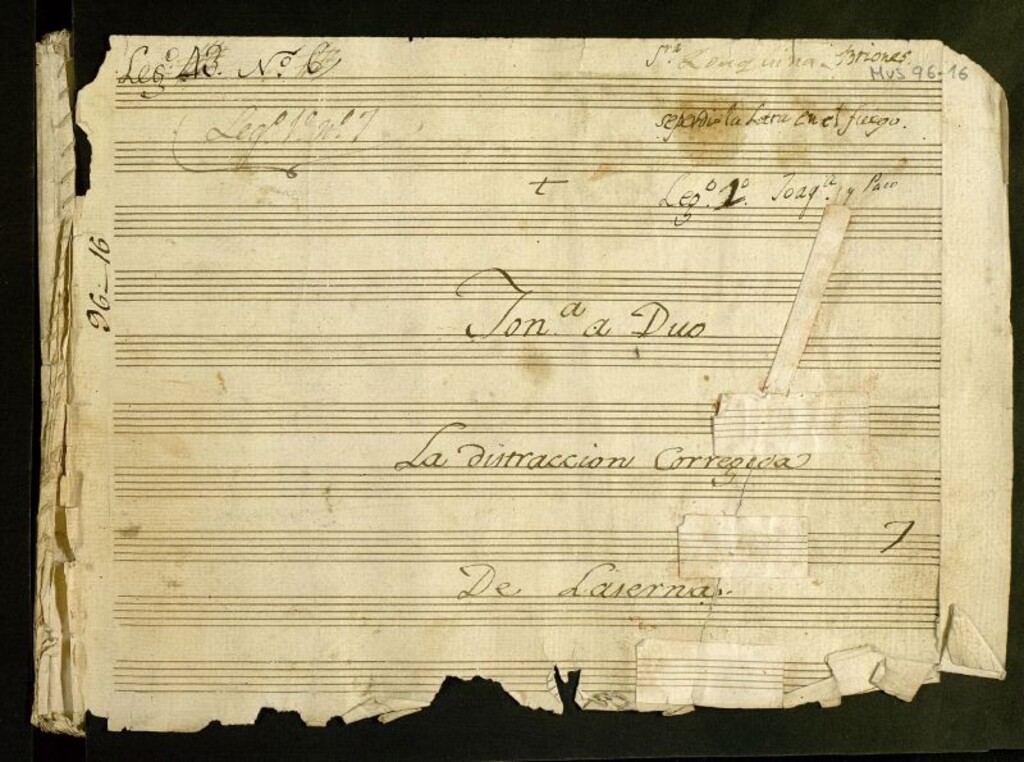 Leg.º 43. N.º 6
S.ra Joaquina Briones.
MUS 96-16
Leg.º 1.º n.º 7
se perdio la Letra en el fuego.
Leg.º 1.º Joaq.ª y Paco
96-16
Ton.ª a Duo
La distraccion Corregida
7
De Laserna.